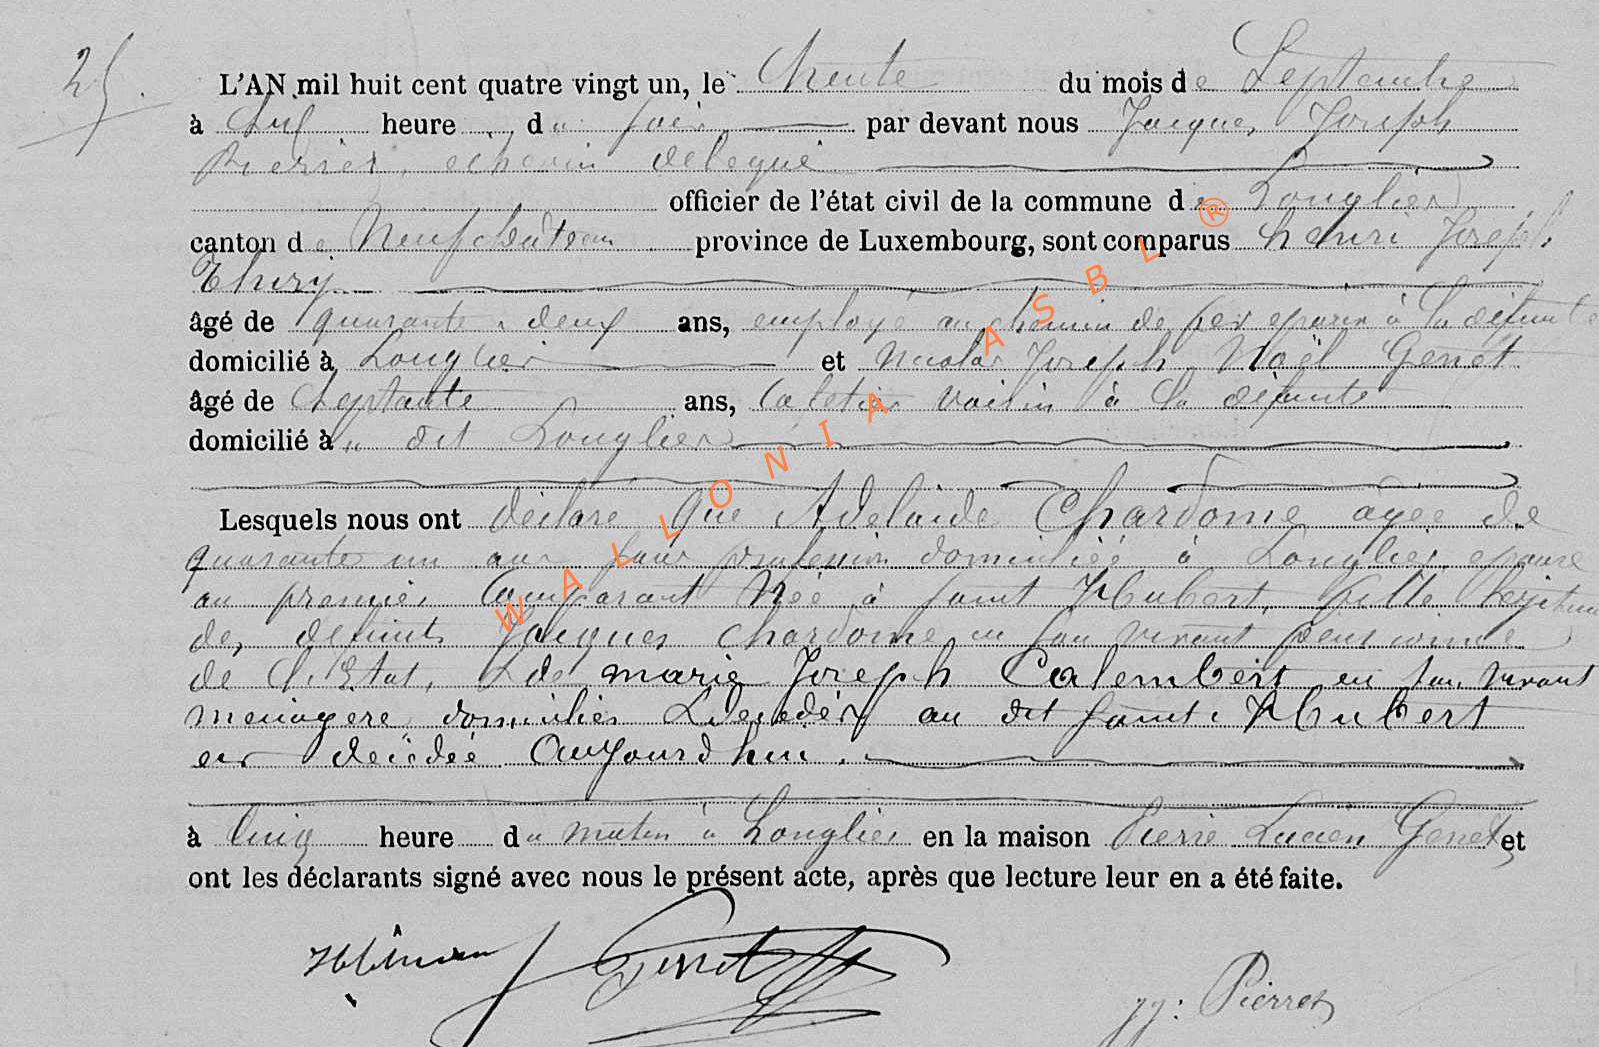 25.
L'AN mil huit cent quatre vingt un, le trente du mois de Septembre
à heure du soir par devant nous Jacques Joseph
Pierret, echevin delegué
officier de l'état civil de la commune de Longlier
canton de Neufchâteau province de Luxembourg, sont comparus henri Joseph
Thiry
âgé de quarante deux ans, employé au chemin de fer epoux à la défunte
domicilié à Longlier et Nicolas Joseph Noël Genet
âgé de Septante ans, Cafetier voisin à la defunte
domicilié à dit Longlier
Lesquels nous ont déclaré que Adelaide Chardome agee de
quarante un ans sans profession domiciliée à Longlier epouse
au premier Comparant Née à saint Hubert, fille légitime
de, defunts Jacques Chardome en son vivant pensionné
de l'Etat, & de marie Joseph Calembert en son vivant
menagere domiciliés & decedés au dit saint Hubert
est decédée aujourdhui.
à cinq heure du matin à Longlier en la maison Pierre Lucien Genet et
ont les déclarants signé avec nous le présent acte, après que lecture leur en a été faite.
Genet
jj: Pierret
WALLONIA ASBL ®